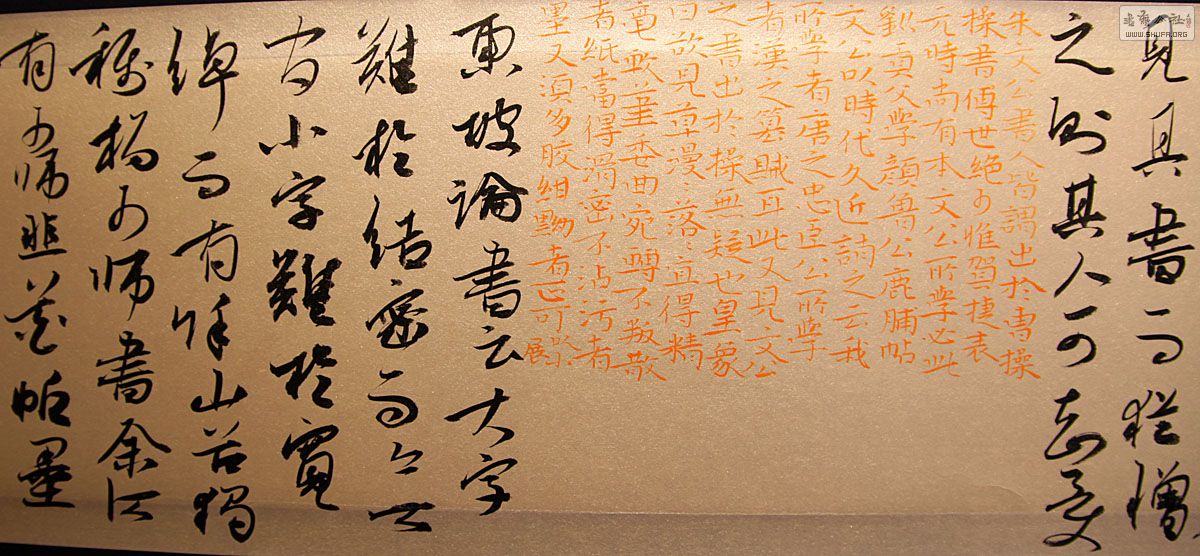 見其書而猶憎
之則其人可知矣
朱文公書人皆謂出於曹操
操書傳世絕少惟賀捷表
元時尚有本文公所學必此
劉貢父學顏魯公鹿脯帖
文公以時代久近誚之云我
所學者唐之忠臣公所學
者漢之篡賊耳此又見文公
之書出於操無疑也皇象
曰欲見草漫〻落〻宜得精
毫筆委曲宛轉不叛散
者紙當得滑密不沾污者
墨又須多膠紺黝者正可
展
東坡論書云大字
難於結密而無
間小字難於寬
綽而有餘山谷獨
稱楊少師書余所
有少師韭花帖墨